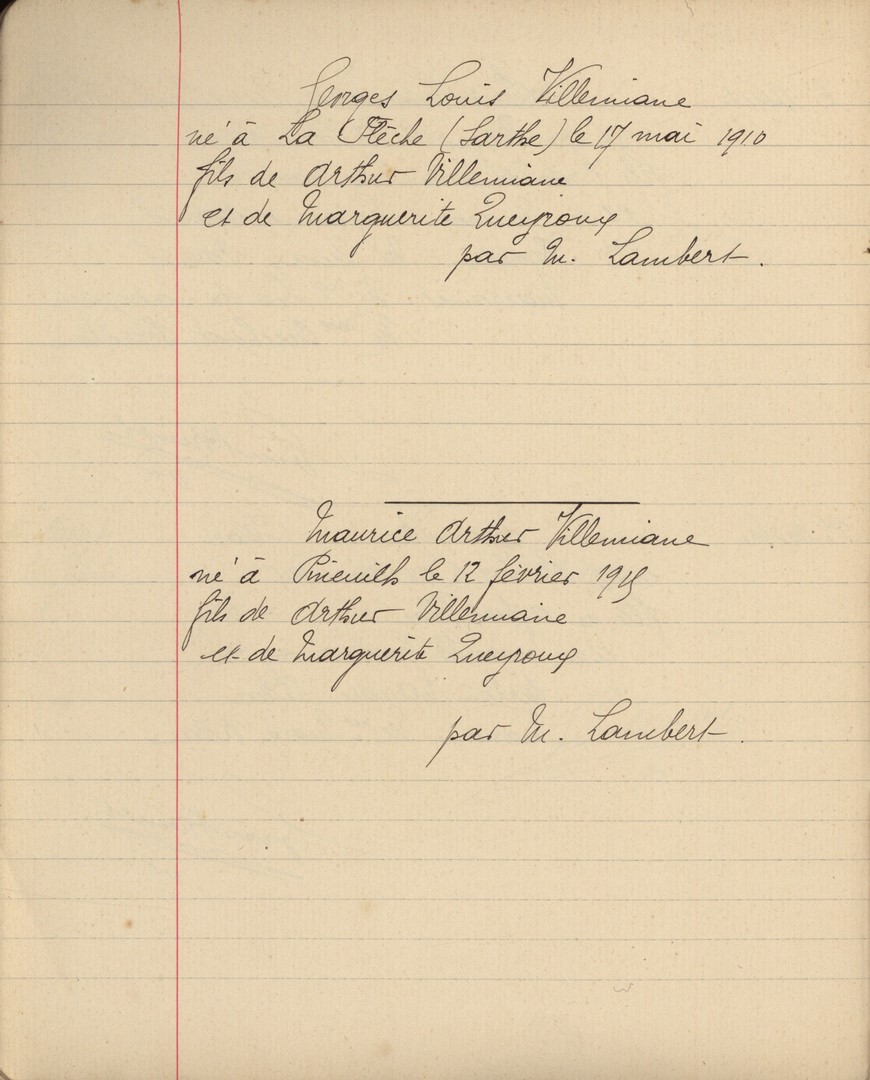 Georges Louis Villemiane
né à La Flèche (Sarthe) le 17 mai 1910
fils de Arthur Villemiane
et de Marguerite Queyroux
par M. Lambert.
Maurice Arthur Villemiane
né à Pineuilh le 12 février 1915
fils de Arthur Villemiane
et de Marguerite Queyroux
par M. Lambert.